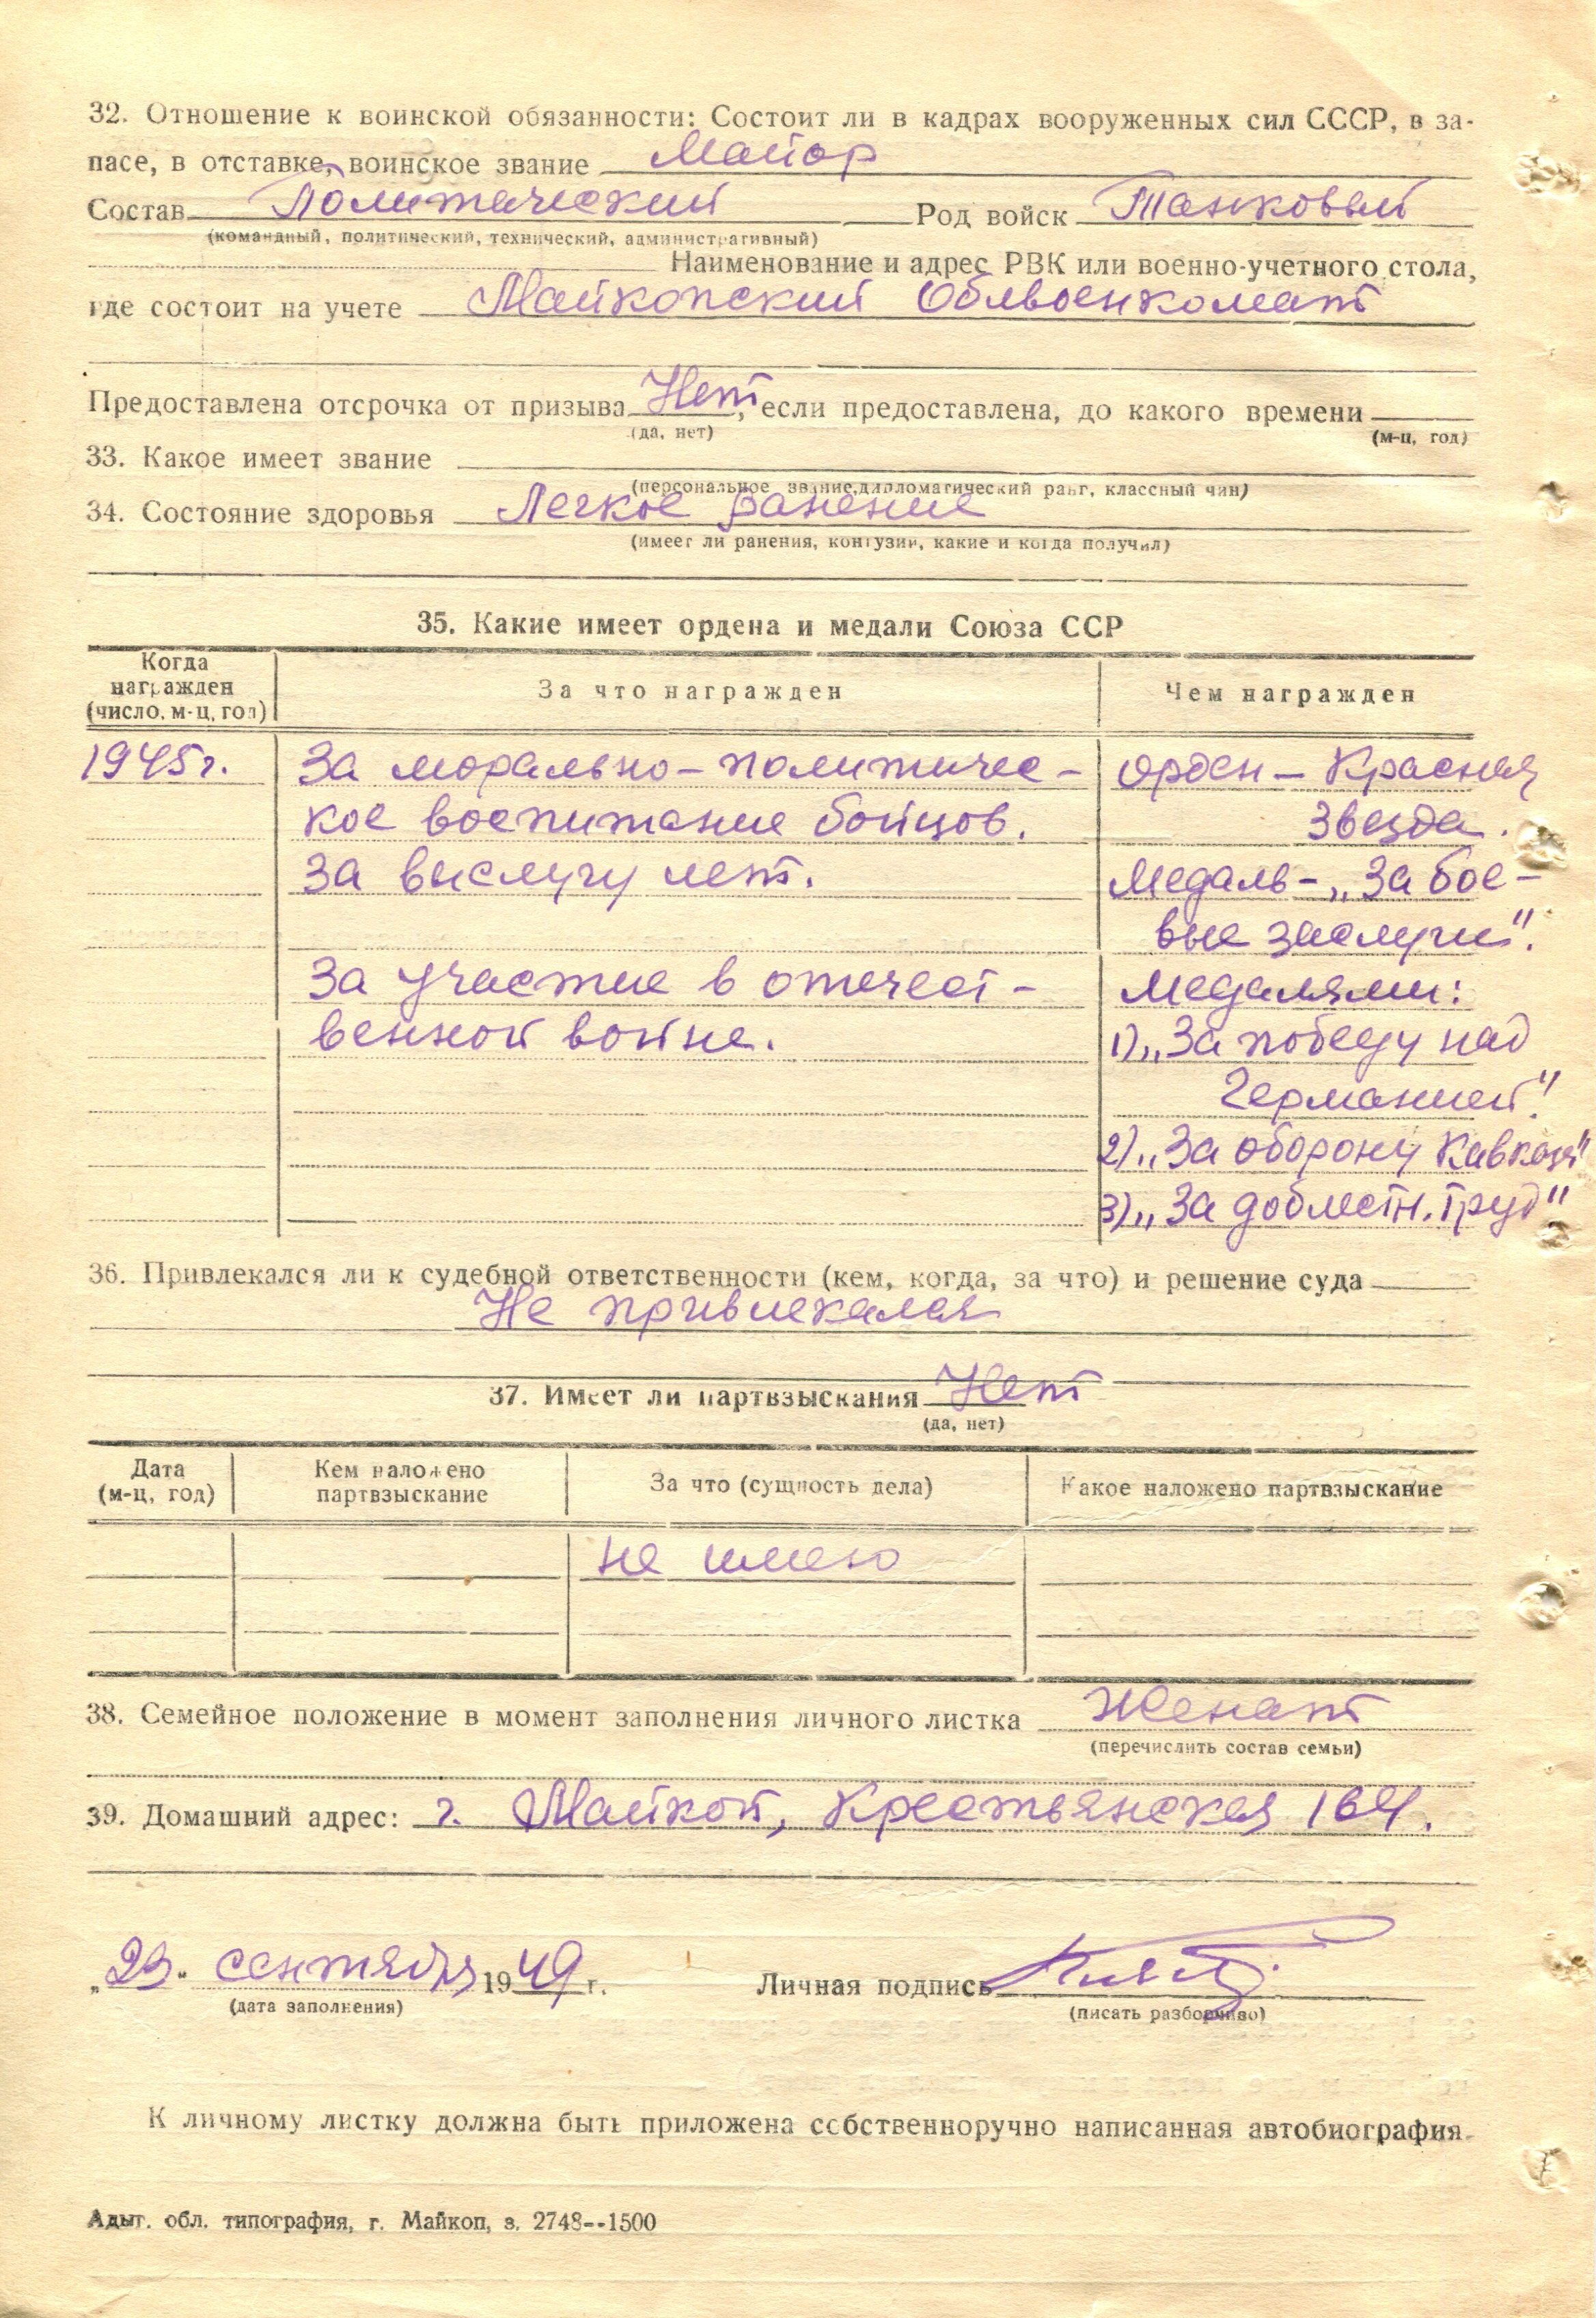 32. Отношение к воинской обязанности: Состоит ли в кадрах вооруженных сил СССР, в за-
пасе, в отставке, воинское звание Майор
Состав Политический Род войск Танковый
(командный, политический, технический, административный)
Наименование и адрес РВК или военно-учетного стола,
где состоит на учете Майкопский Облвоенкомат
Предоставлена отсрочка от призыва Нет, если предоставлена, до какого времени
(да, нет) (м-ц, год)
33. Какое имеет звание
(персональное звание, дипломатический ранг, классный чин)
34. Состояние здоровья Легкое ранение
(имеет ли ранения, контузии, какие и когда получил)
35. Какие имеет ордена и медали Союза ССР
Когда
награжден
(число, м-ц, год)
За что награжден
Чем награжден
1945г. За морально-политичес- орден - Красная
кое воспитание бойцов. Звезда.
За выслугу лет. Медаль - „За бое-
вые заслуги".
За участие в отечест- Медалями:
венной войне. 1) „За победу над
Германией".
2) „За оборону Кавказа"
3) „За доблестн. труд"
36. Привлекался ли к судебной ответственности (кем, когда, за что) и решение суда
Не привлекался
37. Имеет ли партвзыскания Нет
(да, нет)
Дата
(м-ц, год)
Кем наложено
партвзыскание
За что (сущность дела)
Какое наложено партвзыскание
не имею
38. Семейное положение в момент заполнения личного листка Женат
(перечислить состав семьи)
39. Домашний адрес: г. Майкоп, Крестьянская 164.
„23" сентября 1949 г. Личная подпись
(дата заполнения) (писать разборчиво)
К личному листку должна быть приложена собственноручно написанная автобиография
Адыг. обл. типография, г. Майкоп, з. 2748--1500